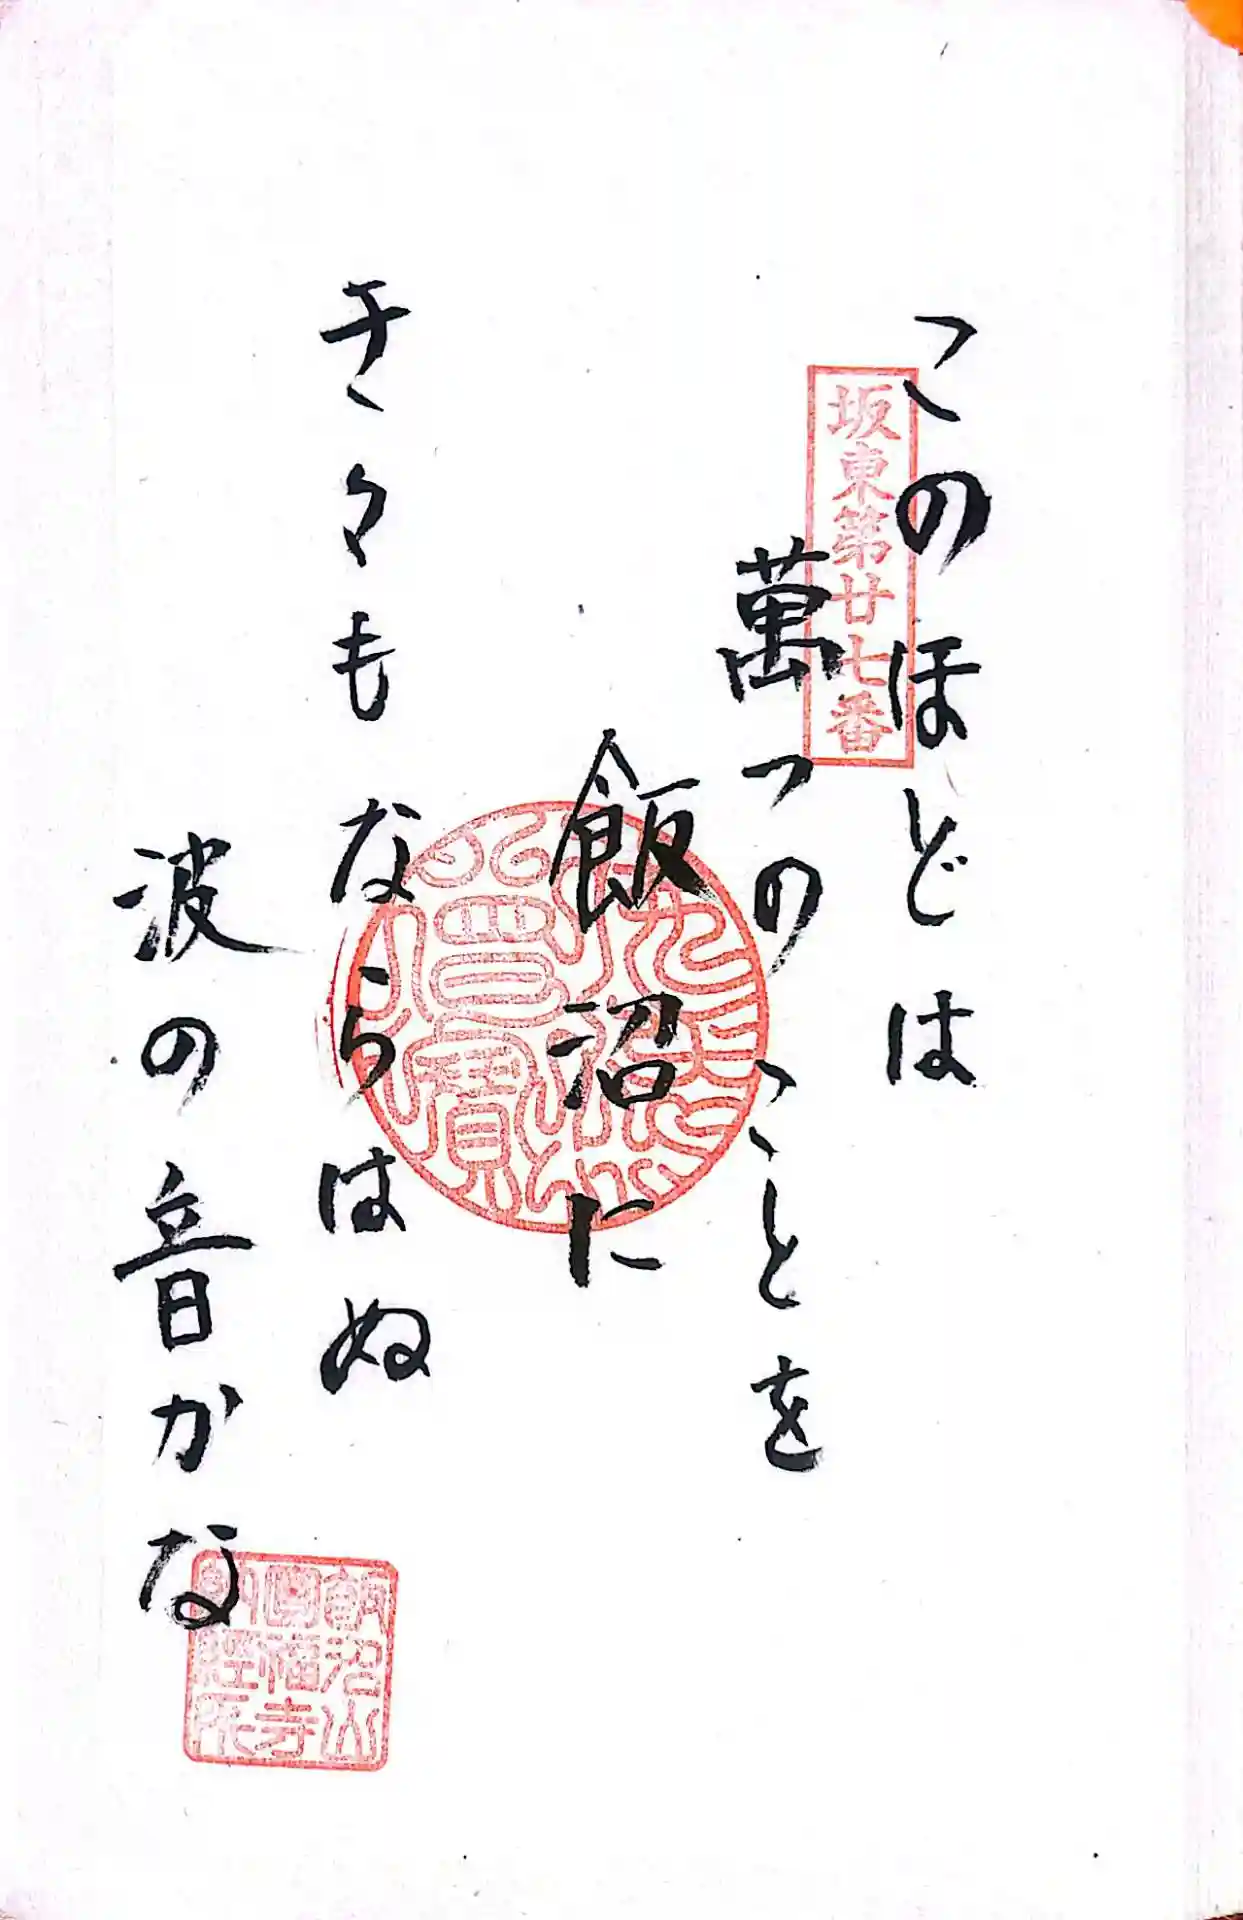 このほどは
坂東第廿七番
萬つのことを
飯沼に
きくもならはぬ
波の音かな
飯沼山
圓福寺
納經所